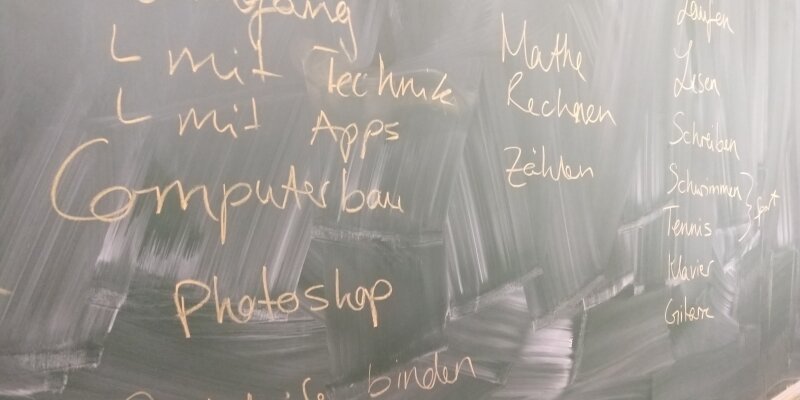 Umgang
L mit Technik
L mit Apps
Computerbau
Photoshop
binden
Mathe
Rechnen
Zählen
Laufen
Lesen
Schreiben
Schwimmen
Tennis
Klavier
Gitarre